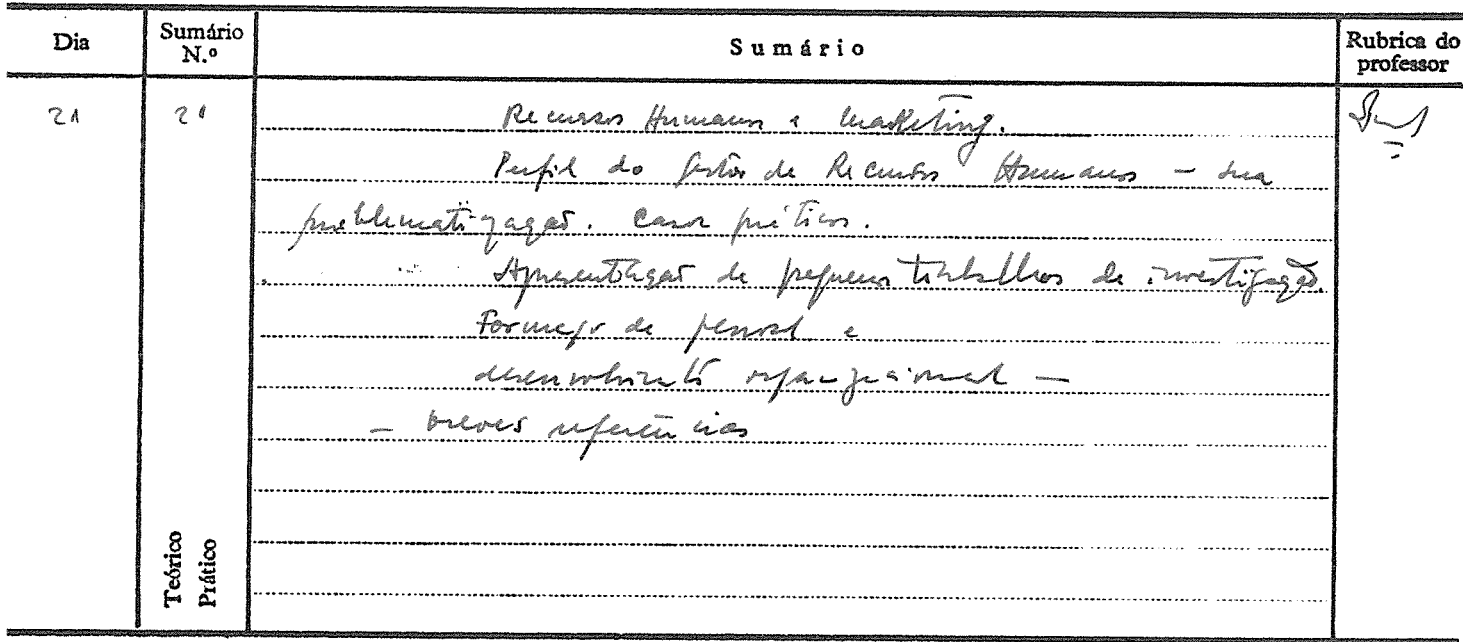 Dia
Sumário N.º
Sumário
Rubrica do professor
21
Recursos Humanos e Marketing.
Perfil do Gestor de Recursos Humanos – sua
problematização. Casos práticos.
Apresentação de pequenos trabalhos de investigação.
Formação de pessoal e
desenvolvimento organizacional –
– breves referências
Teórico
Prático